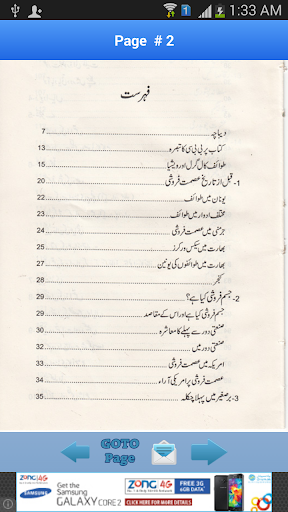 1:33 AM
Page # 2
فہرست
دیباچہ 7
کتاب پر بی بی سی کا تبصرہ 10
طوائف کال گرل اور ویشیا 15
1- قبل از تاریخ عصمت فروشی 20
یونان میں طوائف 20
مختلف ادوار میں طوائف 22
جرمنی میں عصمت فروشی 24
بھارت میں سیکس ورکرز 24
بھارت میں طوائفوں کی یونین 27
کنجر 28
2- جسم فروشی کیا ہے؟ 29
جسم فروشی کیا ہے اور اس کے مقاصد 29
صنعتی دور سے پہلے کا معاشرہ 31
صنعتی دور میں 32
امریکہ میں عصمت فروشی 33
عصمت فروشی پر امریکی آراء 34
3- برصغیر میں پہلا چکلہ 35
GOTO
Page
ZONG 4G
SAMSUNG
Get the
Samsung
GALAXY CORE 2
ZONG 4G
CLICK HERE FOR MORE DETAILS
FREE 3G
6GB DATA*